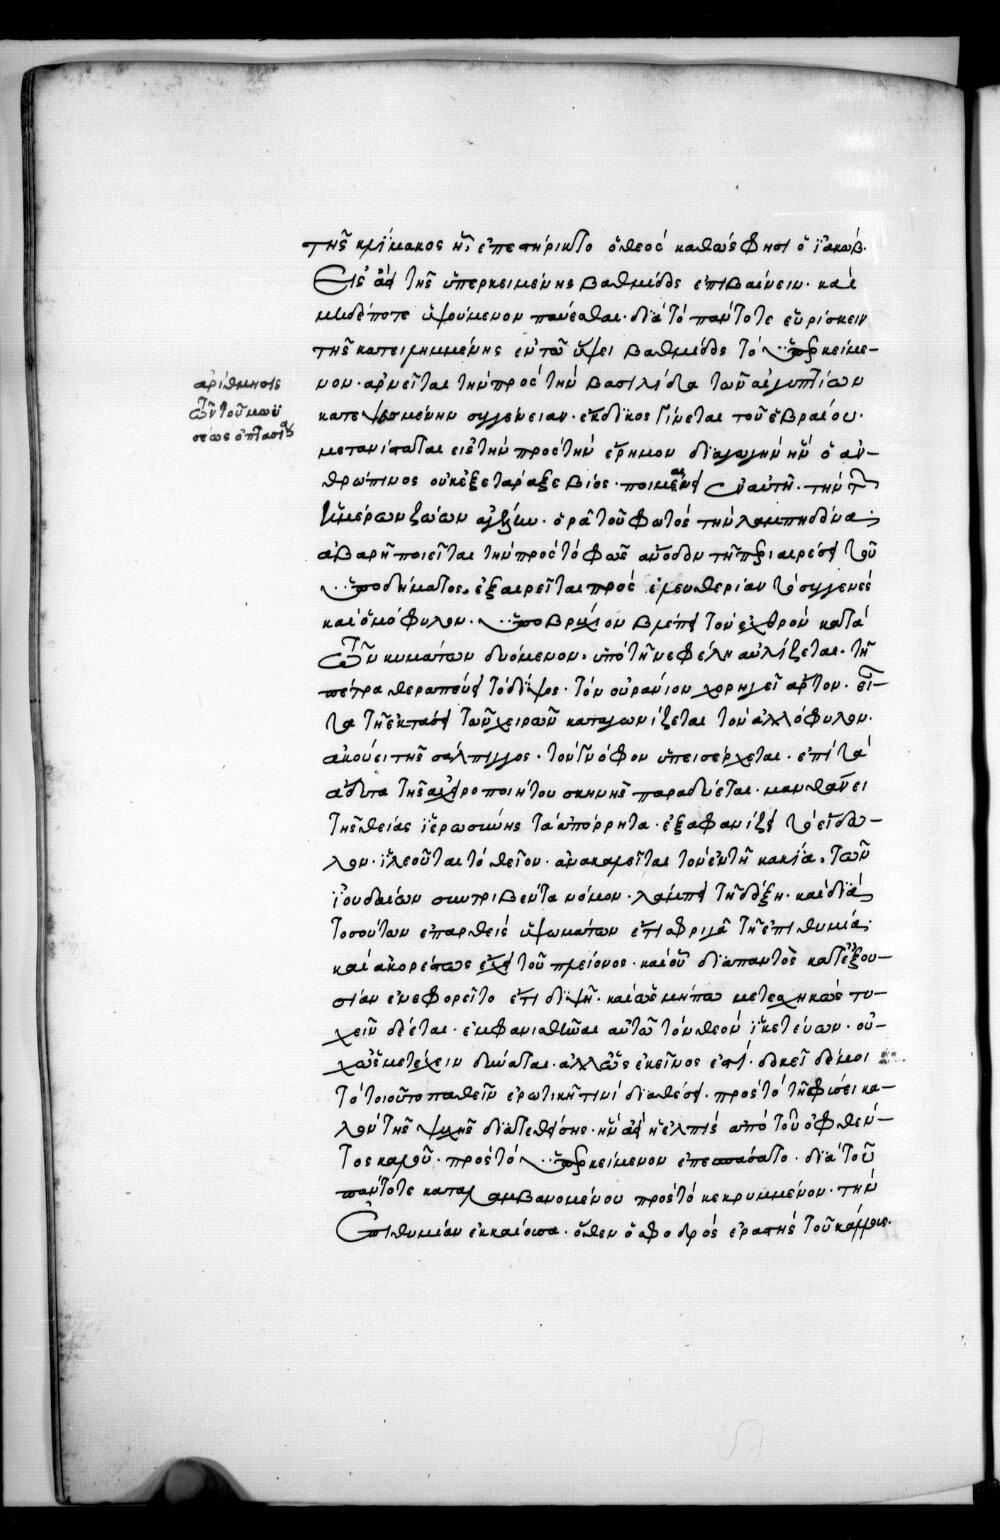 τῆς κλίμακος ἧ ἐπεστήρικτο ὁ θεός καθώς φησι ὁ ἰακώβ.
Εἰς ἀεὶ τῆς ὑπερκειμένης βαθμίδος ἐπιβαίνειν. καὶ
μηδέποτε ὑψούμενον παύεσθαι. διὰ τὸ πάντοτε εὑρίσκειν
τῆς κατειλημμένης ἐν τῶ ὕψει βαθμίδος τὸ ὑπερκείμε-
νον. ἀρνεῖται τὴν πρὸς τὴν βασιλίδα τῶν αἰγυπτίων
κατεψευσμένην συγγένειαν. ἔκδικος γίνεται τοῦ ἑβραίου.
μετανίσταται εἰς τὴν πρὸς τὴν ἔρημον διαγωγὴν ἣν ὁ ἀν-
θρώπινος οὐκ ἐξετάραξε βίος. ποιμαίνει ἐν αὐτῆ. τὴν τῶν
ἡμέρων ζώων ἀγέλην. ὁρᾶ τοῦ φωτὸς τὴν λαμπηδόνα.
ἀβαρῆ ποιεῖται τὴν πρὸς τὸ φῶς ἄνοδον τῆ περιαιρέσει τοῦ
ὑποδήματος. ἐξαιρεῖται πρὸς ἐλευθερίαν τὸ συγγενὲς
καὶ ὁμόφυλον. ὑποβρύχιον βλέπει τὸν ἐχθρὸν κατὰ
τῶν κυμάτων δυόμενον. ὑπὸ τῆ νεφέλη αὐλίζεται. τῆ
πέτρα θεραπεύει τὸ δίψος. τὸν οὐράνιον χορηγεῖ ἄρτον. εἶ-
τα τῆ ἐκτάσει τῶν χειρῶν καταγωνίζεται τὸν ἀλλόφυλον.
ἀκούει τῆς σάλπιγγος. τὸν γνόφον ὑπεισέρχεται. ἐπὶ τὰ
ἄδυτα τῆς ἀχειροποιήτου σκηνῆς παραδύεται. μανθάνει
τῆς θείας ἱερωσύνης τὰ ἀπόρρητα. ἐξαφανίζει τὸ εἴδω-
λον. ἱλεοῦται τὸ θεῖον. ἀνακαλεῖται τὸν ἐν τῆ κακία. τῶν
ἰουδαίων συντριβέντα νόμον. λάμπει τῆ δόξη. καὶ διὰ
τοσούτων ἐπαρθεὶς ὑψωμάτων ἔτι σφριγᾶ τῆ ἐπιθυμία.
καὶ ἀκορέστως ἔχει τοῦ πλείονος. καὶ οὗ διαπαντὸς κατ' ἐξου-
σίαν ἐνεφορεῖτο ἔτι διψῆ. καὶ ὡς μήπω μετεσχηκὼς τυ-
χεῖν δέεται. ἐμφανισθῆναι αὐτῶ τὸν θεὸν ἱκετεύων. οὐ-
χ ὡς μετέχειν δύναται. ἀλλ' ὡς ἐκεῖνος ἐστί. δοκεῖ δέ μοι
τὸ τοιοῦτο παθεῖν ἐρωτικῆ τινὶ διαθέσει. πρὸς τὸ τῆ φύσει κα-
λὸν τῆς ψυχῆς διατεθείσης. ἣν ἀεὶ ἡ ἐλπὶς ἀπὸ τοῦ ὀφθέν-
τος καλοῦ. πρὸς τὸ ὑπερκείμενον ἐπεσπάσατο. διὰ τοῦ
πάντοτε καταλαμβανομένου πρὸς τὸ κεκρυμμένον. τὴν
Ἐπιθυμίαν ἐκκαίουσα. ὅθεν ὁ σφοδρὸς ἐραστὴς τοῦ κάλλους.
ἀρίθμησις
τῶν τοῦ μωϋ
σέως ὀπτασιῶν